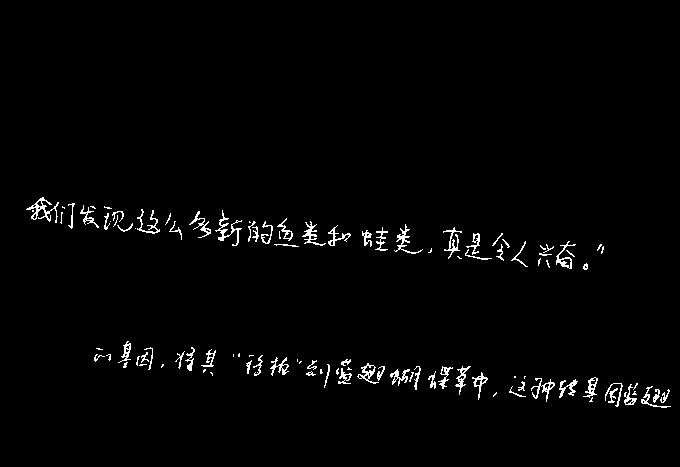 我们发现这么多新的鱼类和蛙类，真是令人兴奋。”
的基因，将其“移植”到蓝翅蝴蝶草中，这种转基因蓝翅